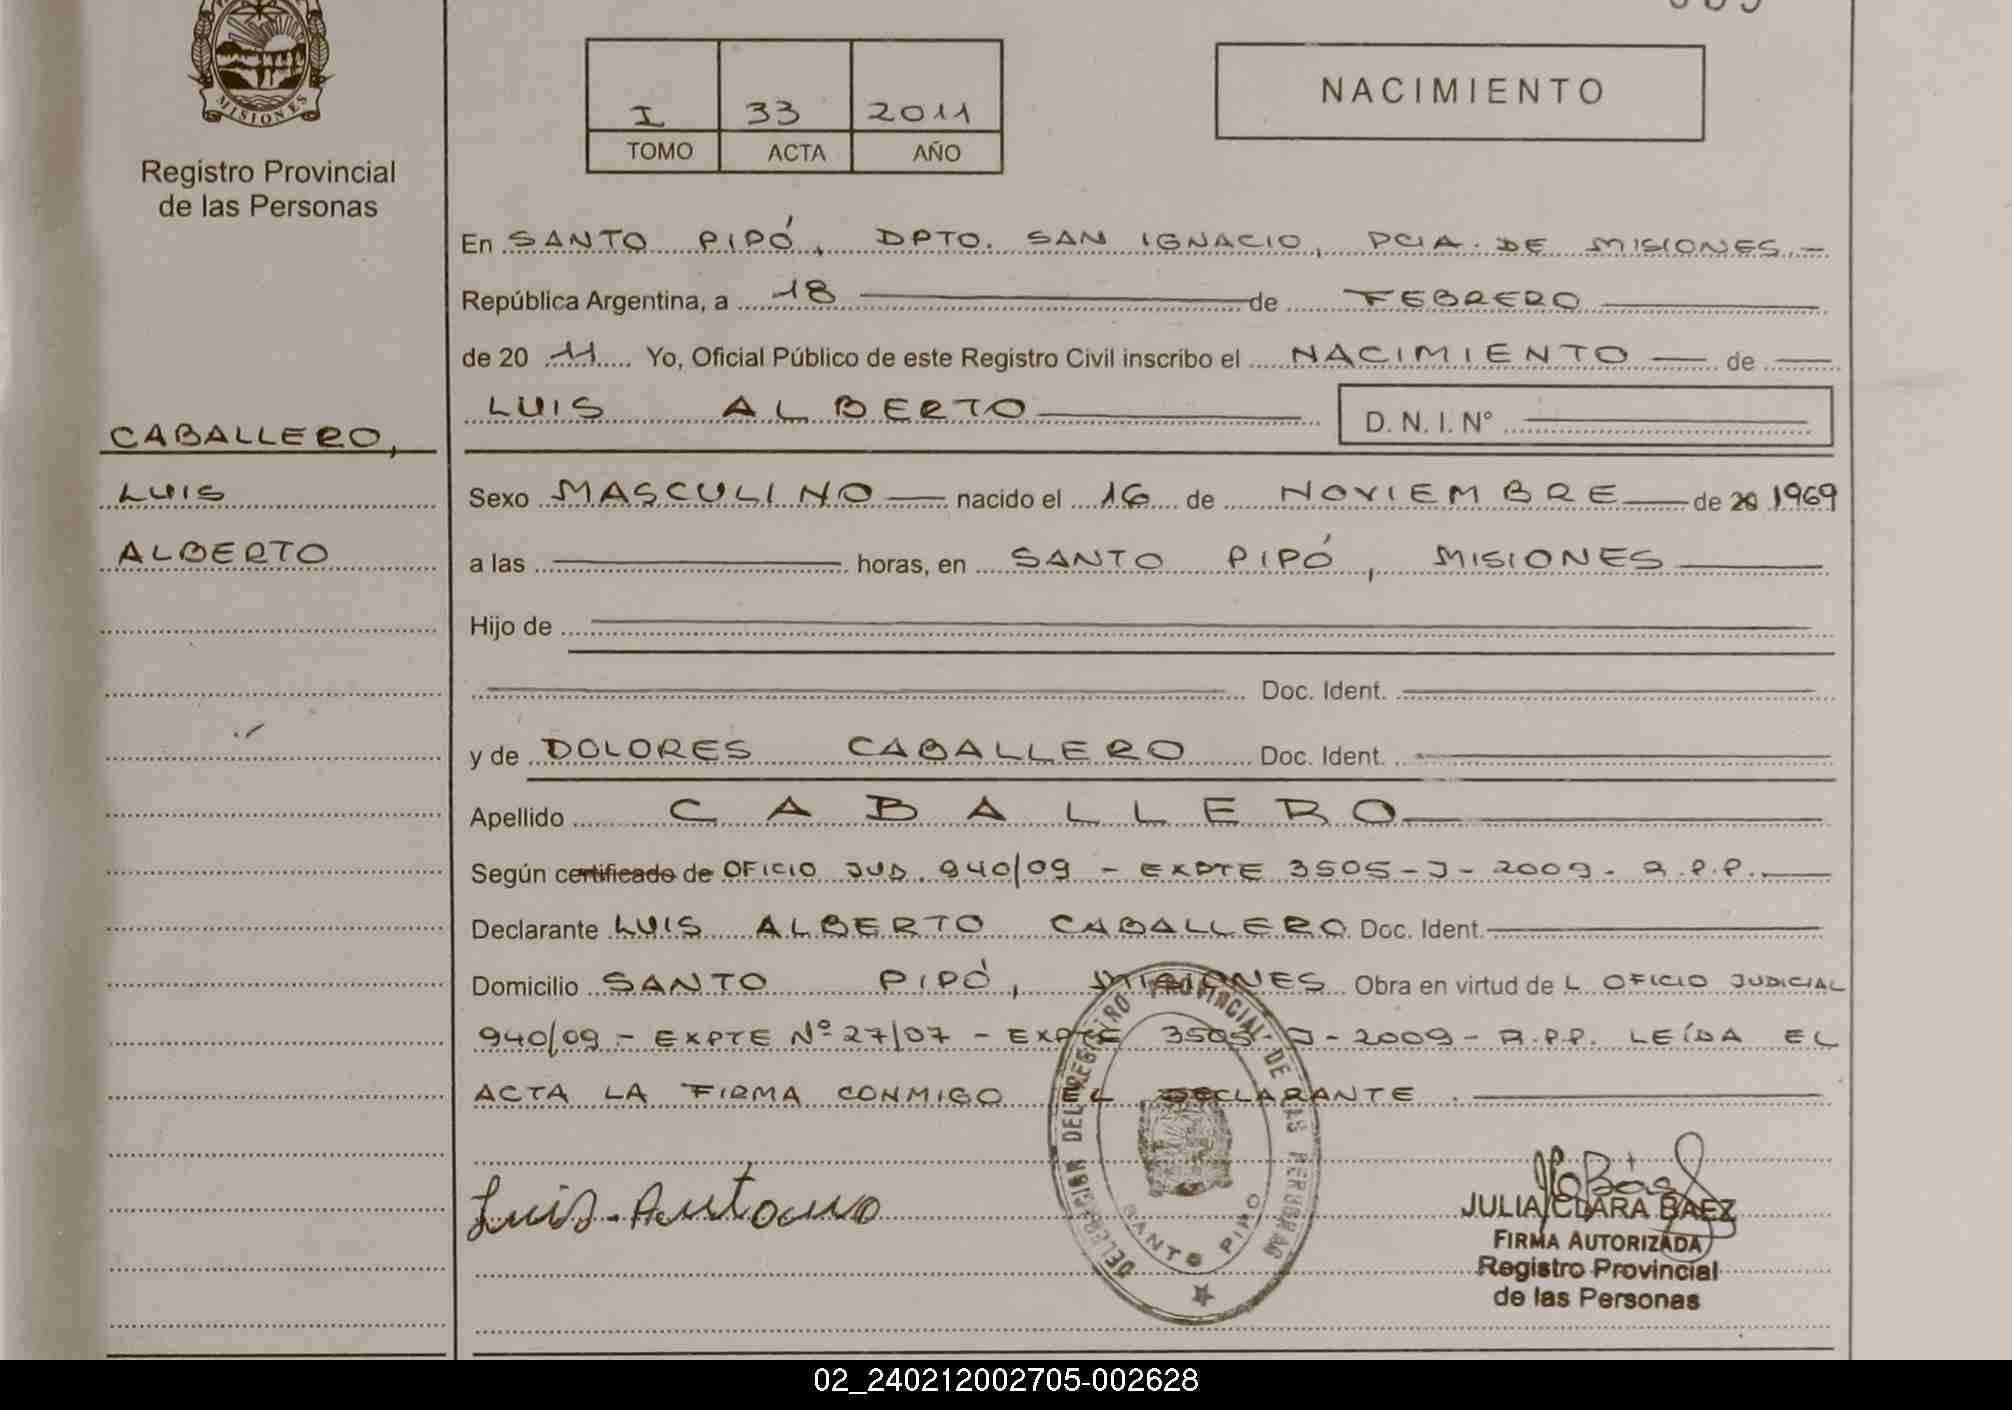 MISIONES
Registro Provincial
de las Personas
CABALLERO,
LUIS
ALBERTO
I 33 2011
TOMO ACTA AÑO
NACIMIENTO
En SANTO PIPÓ, DPTO. SAN IGNACIO, PCIA. DE MISIONES.-
República Argentina, a 18 de FEBRERO
de 20 11 Yo, Oficial Público de este Registro Civil inscribo el NACIMIENTO de
LUIS ALBERTO D. N. I. Nº
Sexo MASCULINO nacido el 16 de NOVIEMBRE de 20 1969
a las horas, en SANTO PIPÓ, MISIONES
Hijo de
Doc. Ident.
y de DOLORES CABALLERO Doc. Ident.
Apellido CABALLERO
Según certificado de OFICIO JUD. 940/09 - EXPTE 3505-J-2009. R.P.P.
Declarante LUIS ALBERTO CABALLERO Doc. Ident.
Domicilio SANTO PIPÓ, MISIONES Obra en virtud de L OFICIO JUDICIAL
940/09 - EXPTE Nº 27/07 - EXPTE 3505-J-2009 - R.P.P. LEÍDA EL
ACTA LA FIRMA CONMIGO EL DECLARANTE.
DELEGACION DEL REGISTRO PROVINCIAL DE LAS PERSONAS
SANTO PIPO
Luis
JULIA CLARA BAEZ
FIRMA AUTORIZADA
Registro Provincial
de las Personas
02_240212002705-002628